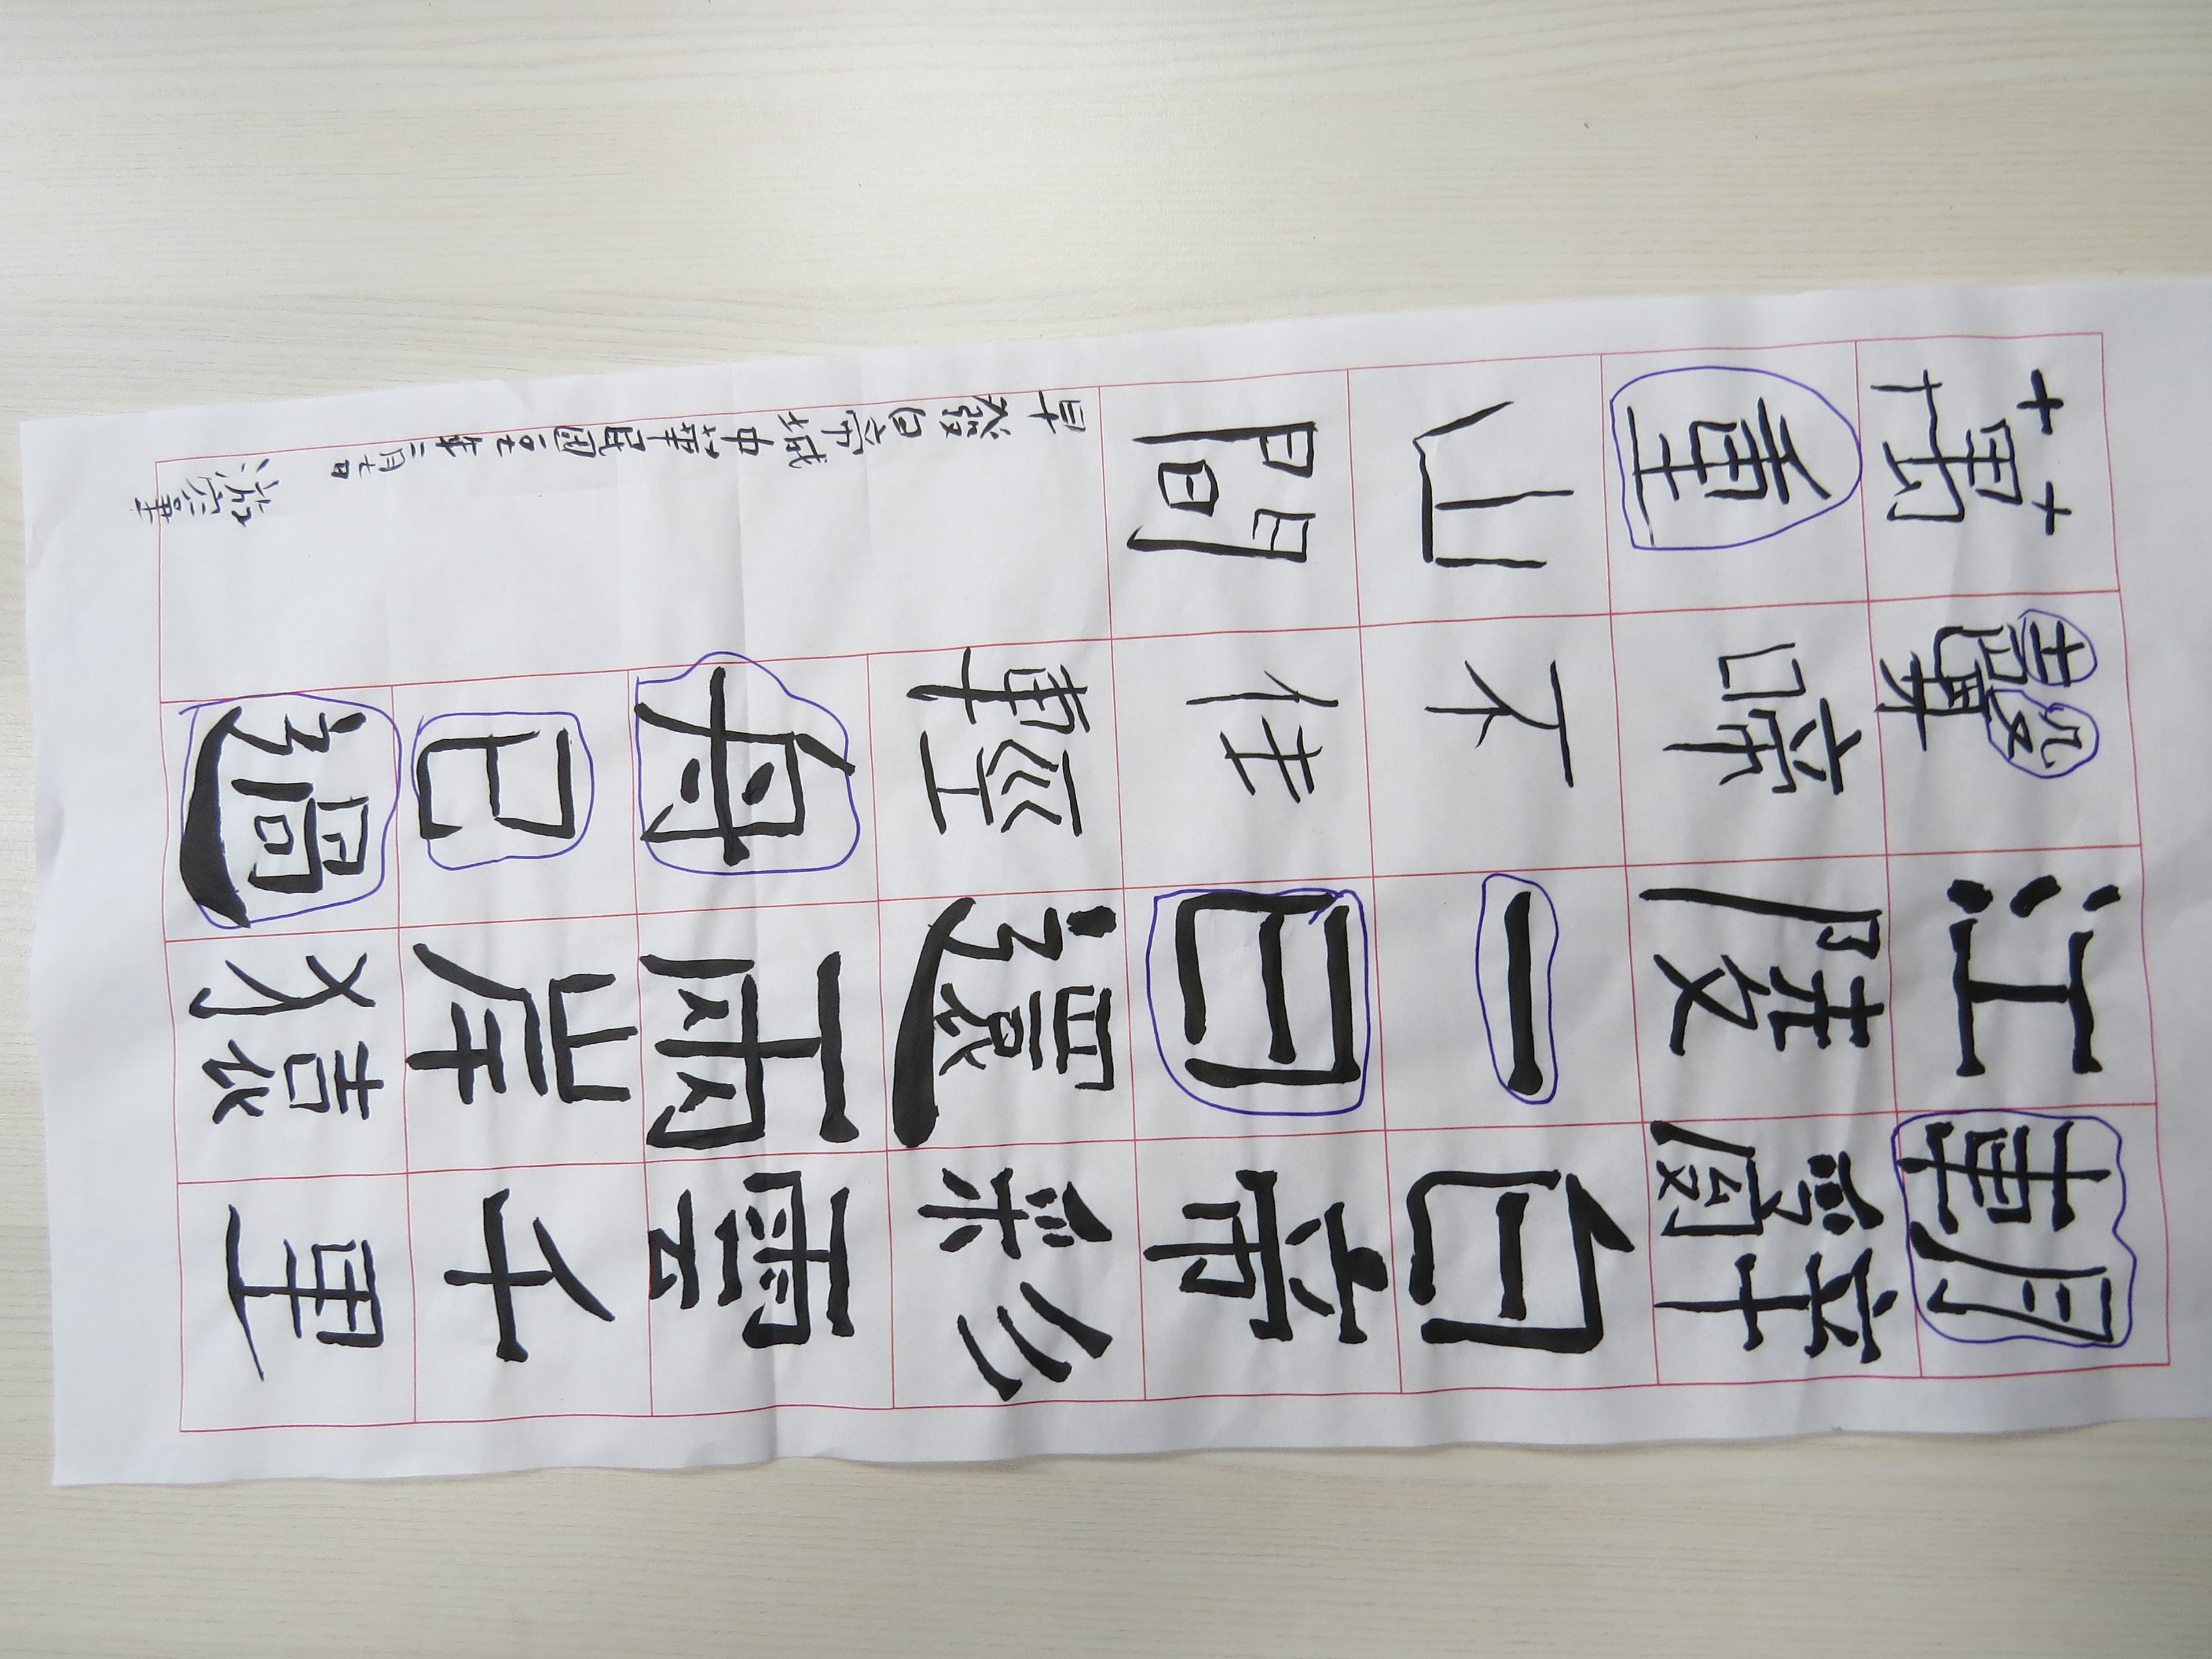 朝辭白帝彩雲千里
江陵一日還兩岸猿
聲啼不住輕舟已過
萬重山間
早發白帝城中華民國一〇七年二月七日